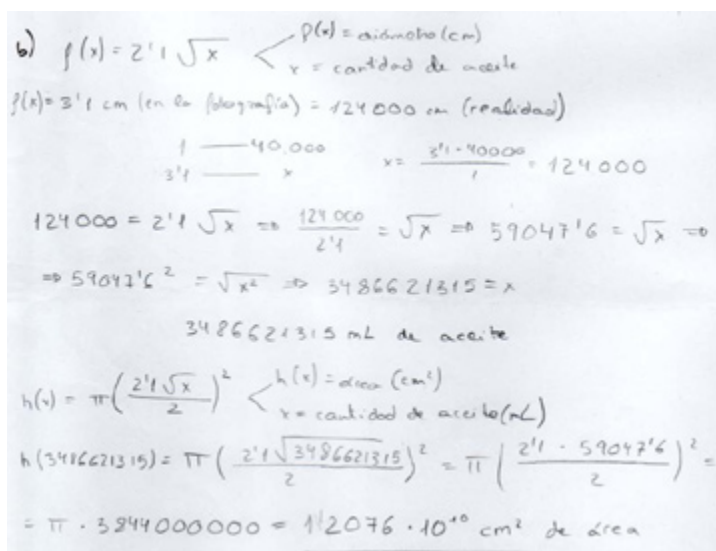 b) f(x) = 2'1 √x < f(x) = diámetro (cm)
x = cantidad de aceite
f(x) = 3'1 cm (en la fotografía) = 124000 cm (realidad)
1 —— 40.000
3'1 —— x
x = 3'1 · 40000 / 1 = 124000
124000 = 2'1 √x ⇒ 124000 / 2'1 = √x ⇒ 59047'6 = √x ⇒
⇒ 59047'6² = √x² ⇒ 3486621315 = x
3486621315 mL de aceite
h(x) = π(2'1√x / 2)² < h(x) = área (cm²)
x = cantidad de aceite (mL)
h(3486621315) = π(2'1√3486621315 / 2)² = π(2'1 · 59047'6 / 2)² =
= π · 3844000000 = 1'2076 · 10¹⁰ cm² de área